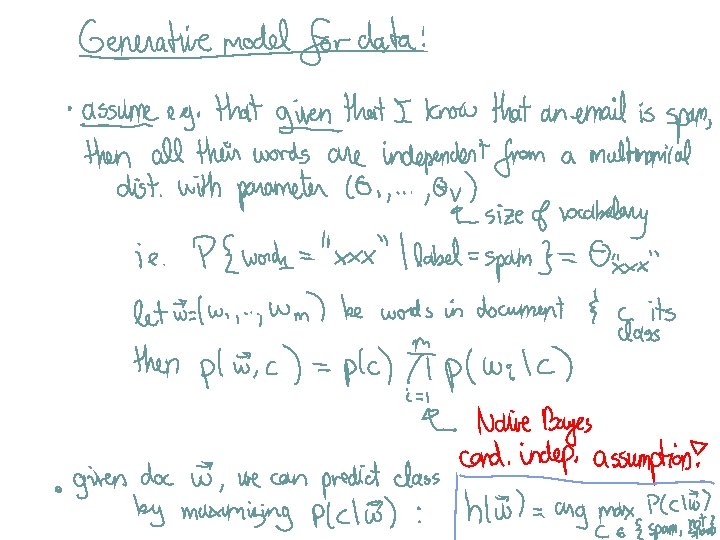 Generative model for data:
• assume e.g. that given that I know that an email is spam,
then all their words are independent from a multinomial
dist. with parameter (θ₁, ..., θ_V)
size of vocabulary
i.e. P{word = "xxx" | label = spam} = θ"xxx"
let w⃗ = (w₁, ..., wₘ) be words in document & c its
class
then p(w⃗, c) = p(c) ∏_{i=1}^{m} p(wᵢ | c)
Naive Bayes
cond. indep. assumption!
• given doc w⃗, we can predict class
by maximizing p(c|w⃗) : h(w⃗) = arg max P(c|w⃗)
c ∈ {spam, not spam}